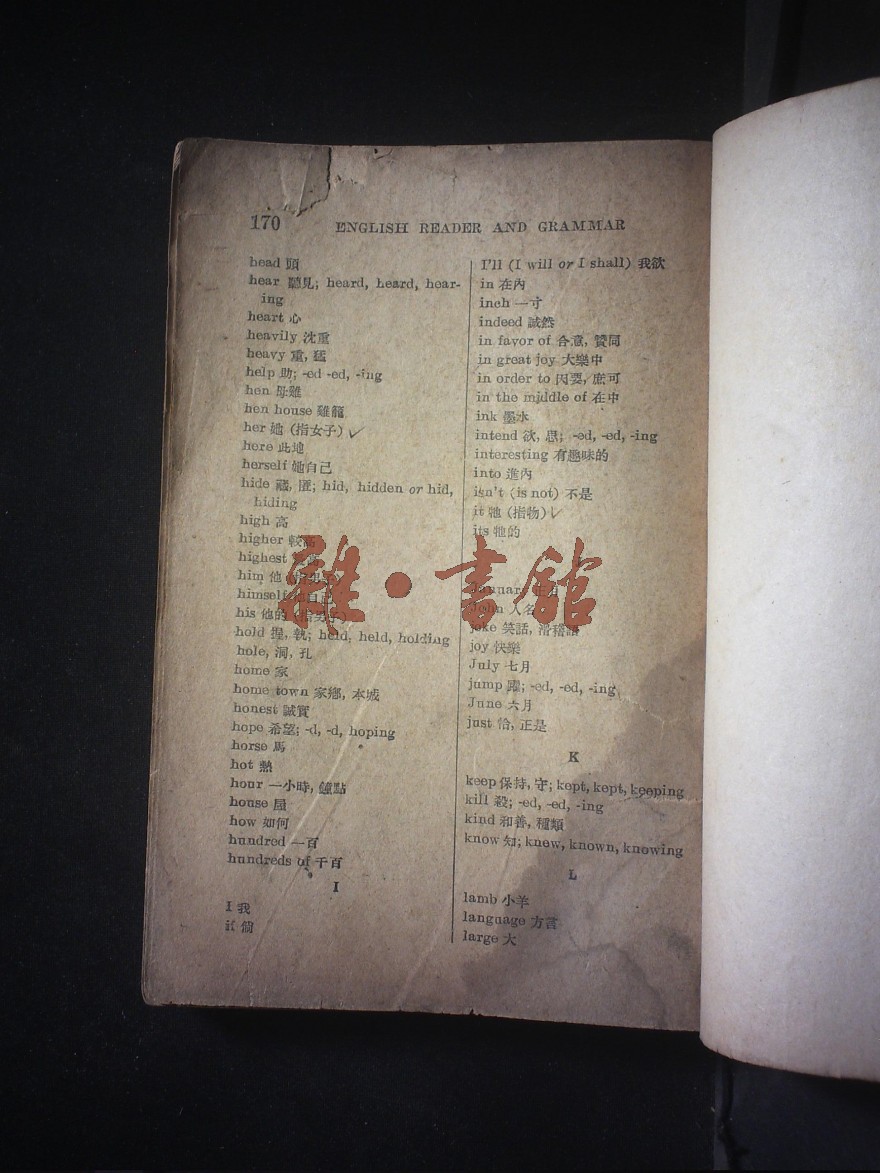 170 ENGLISH READER AND GRAMMAR
head 頭
hear 聽見; heard, heard, hear-
ing
heart 心
heavily 沈重
heavy 重, 猛
help 助; -ed -ed, -ing
hen 母雞
hen house 雞籠
her 她 (指女子)
here 此地
herself 她自己
hide 藏, 匿; hid, hidden or hid,
hiding
high 高
higher 較高
highest
him 他
himself 自己
his 他的 (指男子)
hold 握, 執; held, held, holding
hole, 洞, 孔
home 家
home town 家鄉, 本城
honest 誠實
hope 希望; -d, -d, hoping
horse 馬
hot 熱
hour 一小時, 鐘點
house 屋
how 如何
hundred 一百
hundreds of 千百
I
I 我
if 倘
I'll (I will or I shall) 我欲
in 在內
inch 一寸
indeed 誠然
in favor of 合意, 贊同
in great joy 大樂中
in order to 因要, 庶可
in the middle of 在中
ink 墨水
intend 欲, 思; -ed, -ed, -ing
interesting 有趣味的
into 進內
isn't (is not) 不是
it 牠 (指物)
its 牠的
January 正月
John 人名
joke 笑話, 滑稽語
joy 快樂
July 七月
jump 躍; -ed, -ed, -ing
June 六月
just 恰, 正是
K
keep 保持, 守; kept, kept, keeping
kill 殺; -ed, -ed, -ing
kind 和善, 種類
know 知; knew, known, knowing
L
lamb 小羊
language 方言
large 大
雜·書館